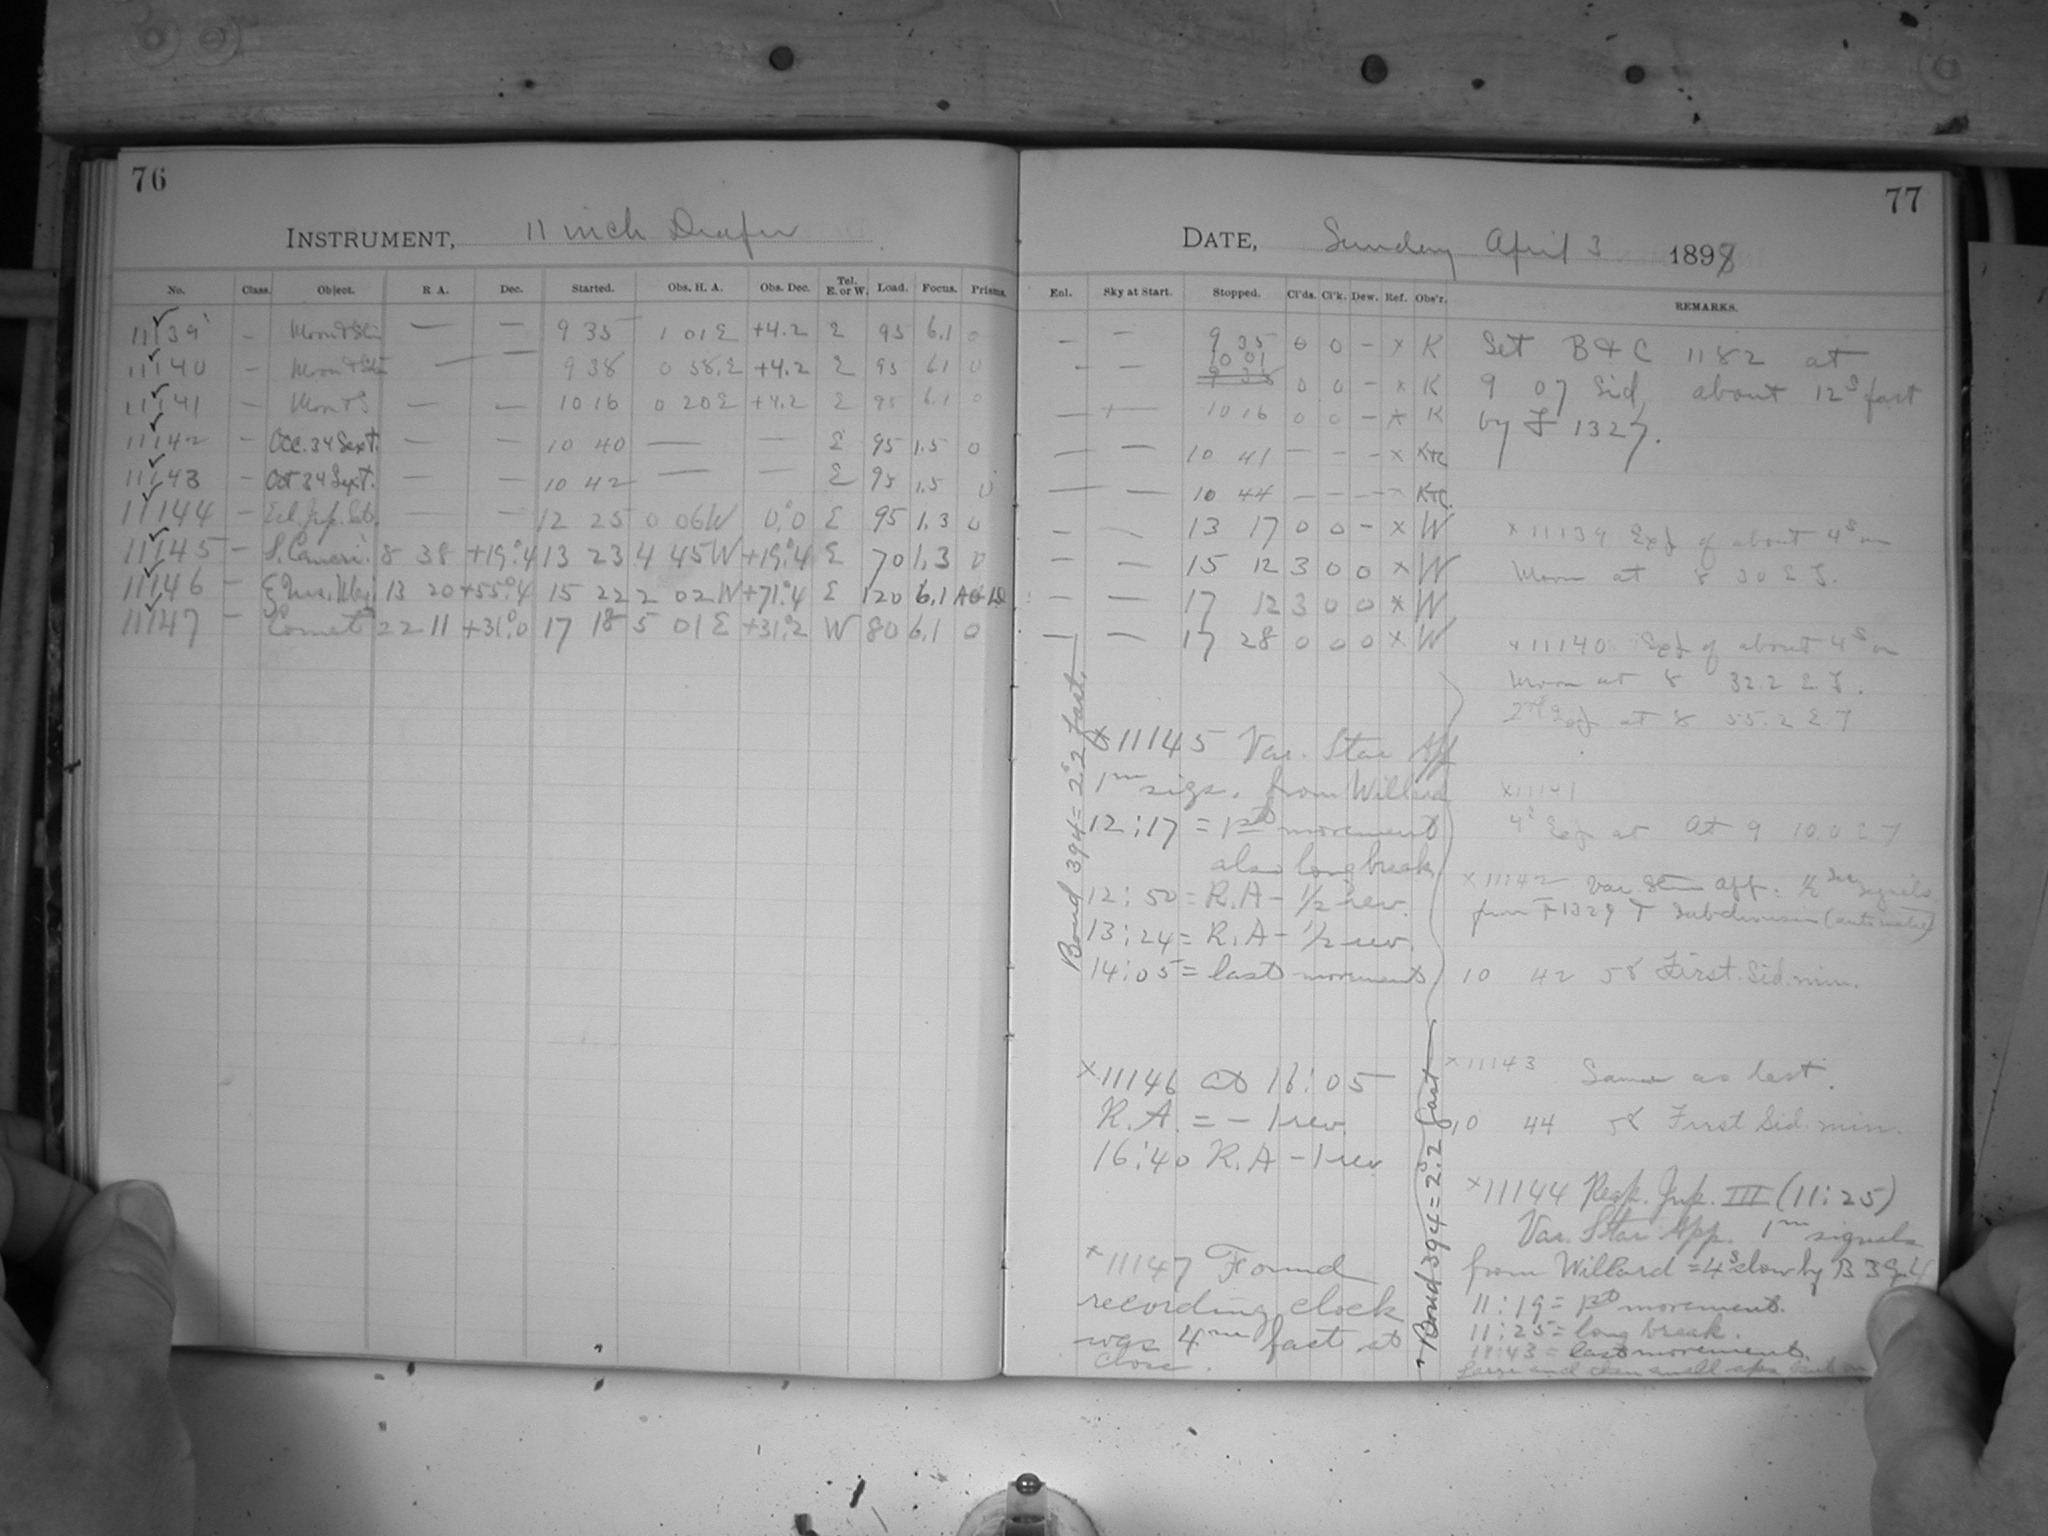 76
INSTRUMENT, 11 inch Draper
No. Class. Object. R A. Dec. Started. Obs. H. A. Obs. Dec. Tel. E. or W. Load. Focus. Prisms.
11139 — Moon & 9 35 1 01 E +4.2 E 95 6.1 0
11140 — Moon & 9 38 0 58. E +4.2 E 95 6.1 0
11141 — Moon & S — — 10 16 0 20 E +4.2 E 95 6.1 0
11142 — Occ. 34 Sext. — — 10 40 — — E 95 1.5 0
11143 — Occ 34 Sext. — — 10 42 — — E 95 1.5 0
11144 — Ecl. Jup. Sat. — — 12 25 0 06 W 0°.0 E 95 1.3 0
11145 — S. Cancri. 8 38 +19°.4 13 23 4 45 W +19°.4 E 70 1.3 0
11146 — Urs. Maj. 13 20 +55°.4 15 22 2 02 W +71°.4 E 120 6.1
11147 — Comet 22 11 +31°.0 17 18 5 01 E +31°.2 W 80 6.1 0
77
DATE, Sunday April 3 1898
Enl. Sky at Start. Stopped. Cl'ds. Cl'k. Dew. Ref. Obs'r. REMARKS.
— — 9 35 0 0 — x K
— — 10 01 9 38 0 0 — x K
— — 10 16 0 0 — x K
— — 10 41 — — — x
— — 10 44 — — — x
— — 13 17 0 0 — x W
— — 15 12 3 0 0 x W
— — 17 12 3 0 0 x W
— — 17 28 0 0 0 x W
Set B & C 1182 at
9 07 Sid. about 12s fast
by F 1327.
x 11139 Exp of about 4s on
Moon at 8 30 E T.
x 11140 Exp of about 4s on
Moon at 8 32.2 E. T.
2nd Exp at 8 55.2 E. T
x 11141
4s Exp at At 9 10.0 E T
x 11142 Var. Star App: ½ signals
from F 1329 T Subdivision
10 42 58 First. Sid. min.
x 11143 Same as last.
10 44 58 First Sid. min.
x 11144 Reap. Jup. III (11:25)
Var. Star App. 1m signals
from Willard = 4s slow by B 394
11:19 = 1st movement.
11:25 = long break.
= last movement.
x 11145 Var. Star App
1m sigs. from Willard
12:17 = 1st movement
also long break
12:50 = R.A - 1/2 rev.
13:24 = R.A - 1/2 rev.
14:05 = last movement
x 11146 at 16:05
R.A. = - 1 rev.
16:40 R.A - 1 rev
x 11147 Found
recording clock
was 4m fast at
close.
Bond 394 = 2s.2 fast.
Bond 394 = 2s.2 fast